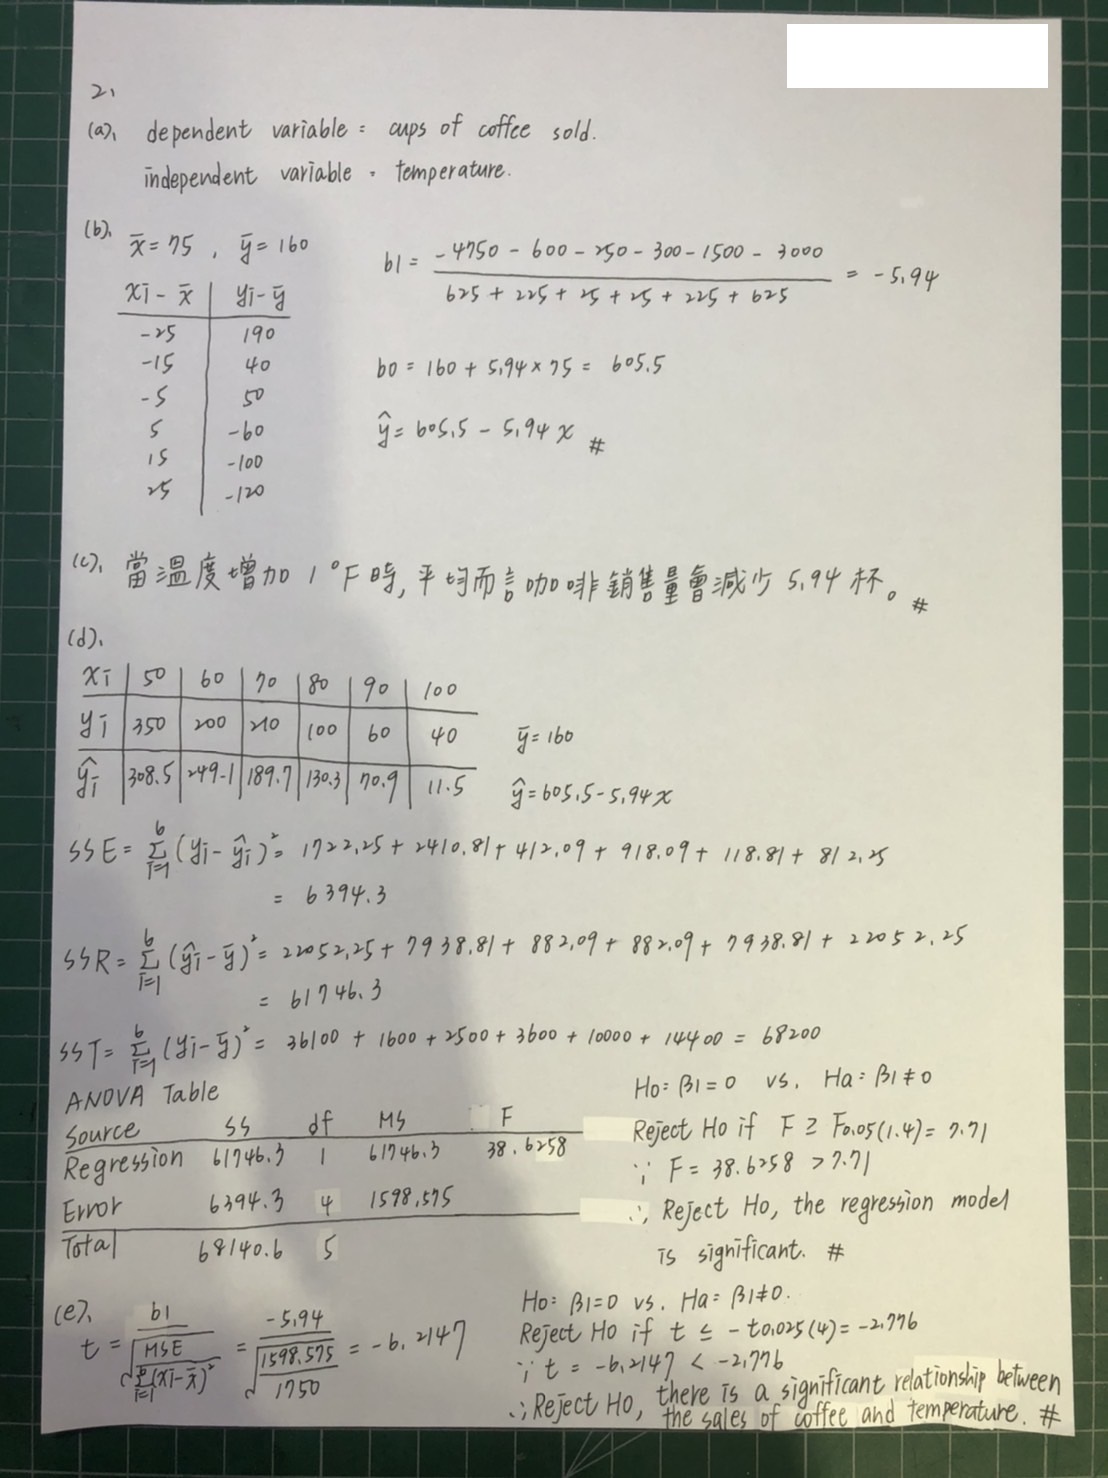 2.
(a). dependent variable = cups of coffee sold.
independent variable = temperature.
(b). x̄ = 75 , ȳ = 160
xi - x̄ | yi - ȳ
-25 | 190
-15 | 40
-5 | 50
5 | -60
15 | -100
25 | -120
b1 = (-4750 - 600 - 250 - 300 - 1500 - 3000) / (625 + 225 + 25 + 25 + 225 + 625) = -5.94
b0 = 160 + 5.94 × 75 = 605.5
ŷ = 605.5 - 5.94 x #
(c). 當溫度增加 1 °F 時, 平均而言咖啡銷售量會減少 5.94 杯。 #
(d).
xi | 50 | 60 | 70 | 80 | 90 | 100
yi | 350 | 200 | 210 | 100 | 60 | 40
ŷi | 308.5 | 249.1 | 189.7 | 130.3 | 70.9 | 11.5
ȳ = 160
ŷ = 605.5 - 5.94x
SSE = Σ i=1 6 (yi - ŷi)² = 1722.25 + 2410.81 + 412.09 + 918.09 + 118.81 + 812.25
= 6394.3
SSR = Σ i=1 6 (ŷi - ȳ)² = 22052.25 + 7938.81 + 882.09 + 882.09 + 7938.81 + 22052.25
= 61746.3
SST = Σ i=1 6 (yi - ȳ)² = 36100 + 1600 + 2500 + 3600 + 10000 + 14400 = 68200
ANOVA Table
Source SS df MS F
Regression 61746.3 1 61746.3 38.6258
Error 6394.3 4 1598.575
Total 68140.6 5
Ho: β1 = 0 vs. Ha: β1 ≠ 0
Reject Ho if F ≥ F0.05(1.4) = 7.71
∵ F = 38.6258 > 7.71
∴ Reject Ho, the regression model
is significant. #
(e).
t = b1 / √(MSE / Σ i=1 n (xi - x̄)²) = -5.94 / √(1598.575 / 1750) = -6.2147
Ho: β1=0 vs. Ha: β1≠0.
Reject Ho if t ≤ -t0.025(4) = -2.776
∵ t = -6.2147 < -2.776
∴ Reject Ho, there is a significant relationship between
the sales of coffee and temperature. #